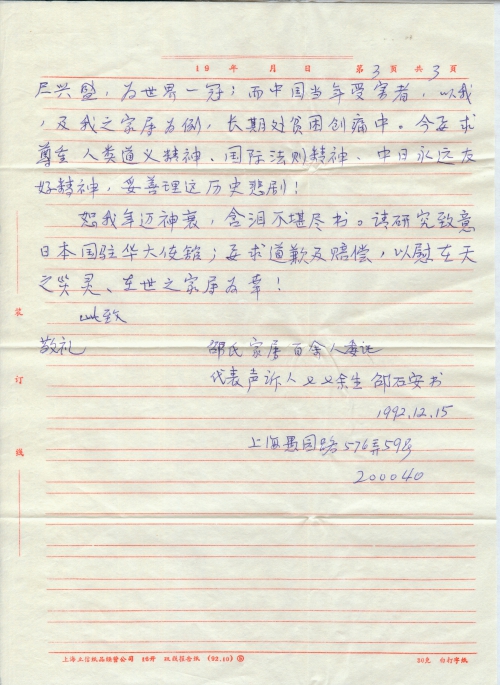 19 年 月 日 第3页共3页
兴盛，为世界一冠；而中国当年受害者，以我，
及我之家属为例，长期处贫困创痛中。今要求
尊重人类道义精神、国际法则精神、中日永远友
好精神，妥善理这历史悲剧！
恕我年迈神衰，含泪不堪尽书。请研究致意
日本国驻华大使馆；要求道歉及赔偿，以慰在天
之灵、在世之家属为幸！
此致
敬礼
邵氏家属百余人委托
代表声诉人 余生 邵石安书
1992.12.15
上海愚园路576弄59号
200040
装
订
线
上海立信纸品联营公司 16开 双线报告纸 (92.10) 30克 白打字纸